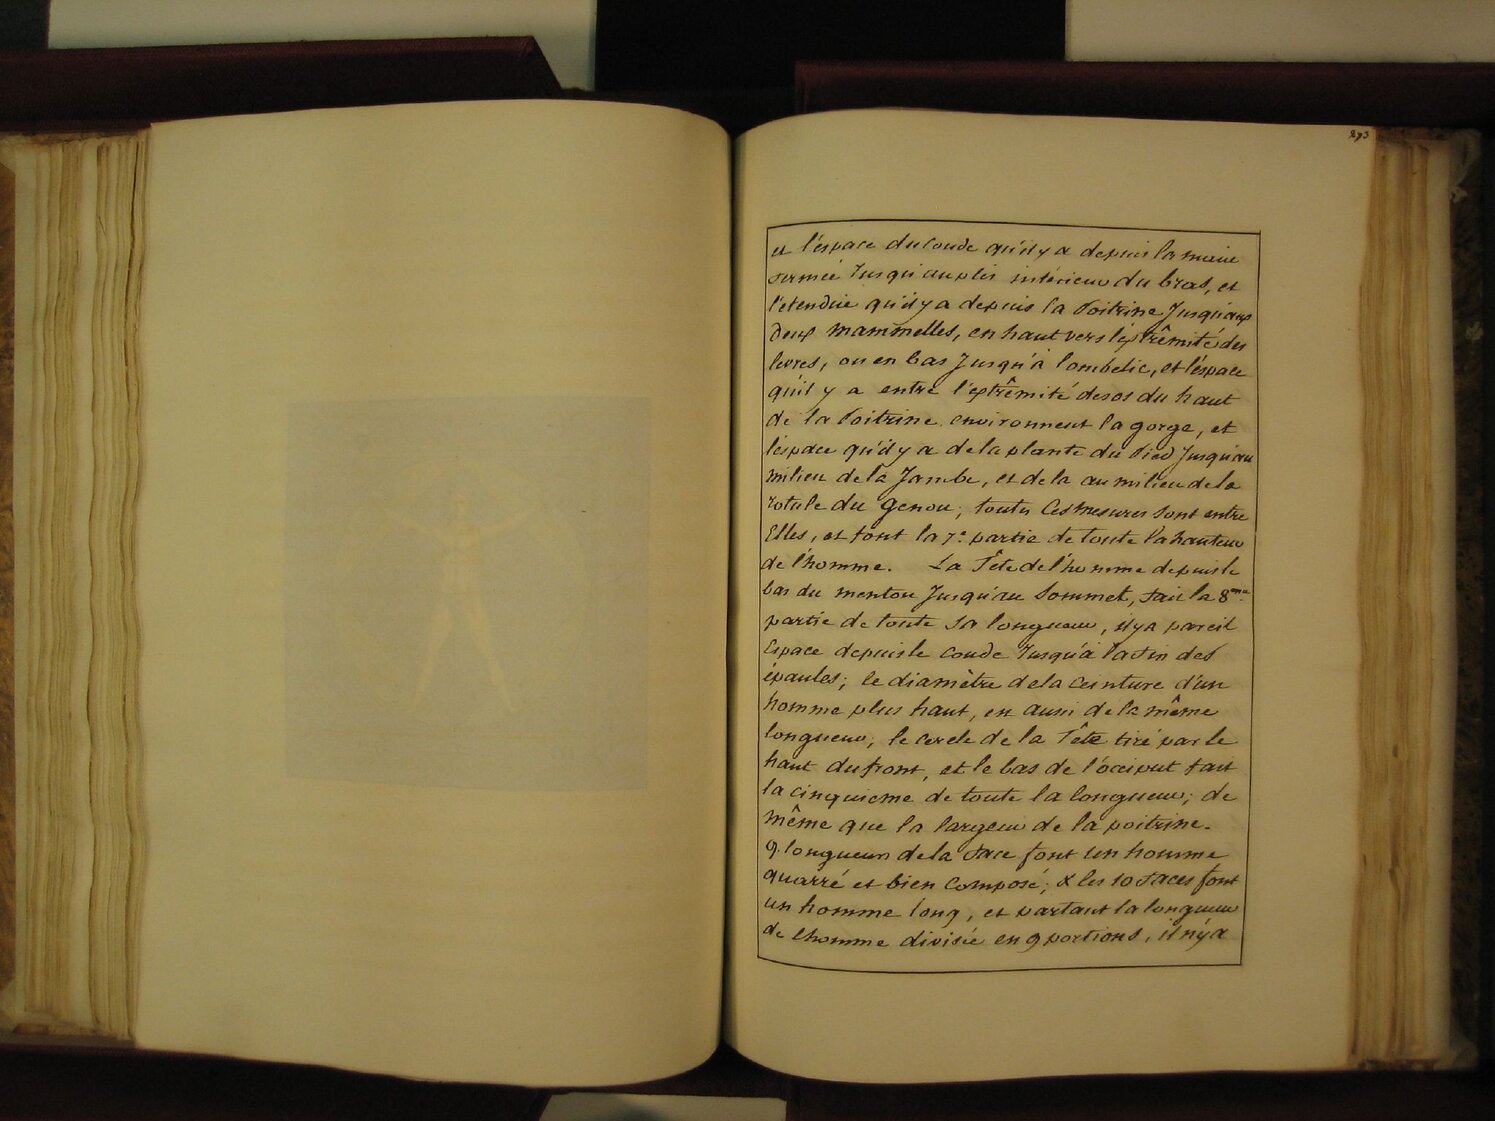 293
et l'éspace du Coude qu'il y a depuis la main
fermée Jusqu'au plis intérieur du bras, et
l'étendüe qu'il y a depuis la Poitrine Jusqu'aux
deux mammelles, en haut vers l'éxtrêmité des
levres, ou en bas Jusqu'à l'ombelic, et l'éspace
qu'il y a entre l'éxtrêmité des os du haut
de la Poitrine environnent la gorge, et
l'éspace qu'il y a de la plante du Pied Jusqu'au
milieu de la Jambe, et de la au milieu de la
rotule du Genou; toutes Ces mesures Sont entre
Elles, et font la 7.e partie de toute la hauteur
de l'homme. La Tête de l'homme depuis le
bas du menton Jusqu'au Sommet, fait la 8.eme
partie de toute Sa longueur, il y a pareil
Espace depuis le coude Jusqu'à la fin des
épaules; le diamètre de la Ceinture d'un
homme plus haut, en aussi de la même
longueur; le cercle de la Tête tiré par le
haut du front, et le bas de l'occiput fait
la cinquieme de toute la longueur; de
même que la largeur de la poitrine.
9. longueurs de la Face font Un homme
quarré et bien Composé; & les 10 Faces font
un homme long, et partant la longueur
de lhomme divisée en 9 portions, il n'y a